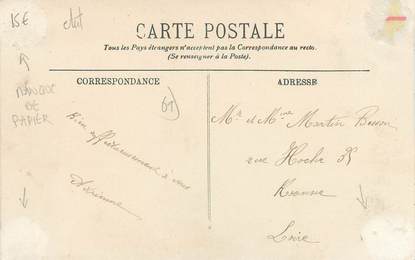 15€
CARTE POSTALE
Tous les Pays étrangers n'acceptent pas la Correspondance au recto.
(Se renseigner à la Poste).
CORRESPONDANCE
ADRESSE
MANQUE
DE
PAPIER
69
Bien affectueusement à vous
Mr et Mme Martin
rue Hoche 35
Roanne
Loire